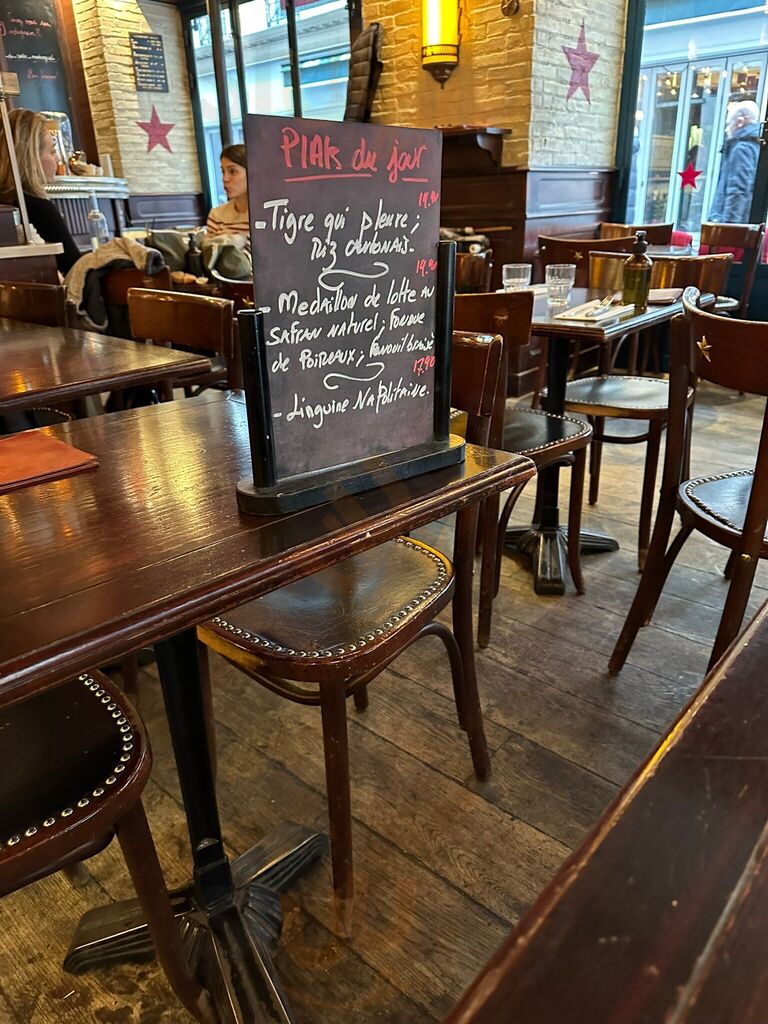 Plat du jour
19.90
- Tigre qui pleure ;
Riz
19.90
- Medaillon de lotte au
safran naturel ; Fondue
de Poireaux ; Fenouil braisé
17.90
- Linguine Napolitaine.